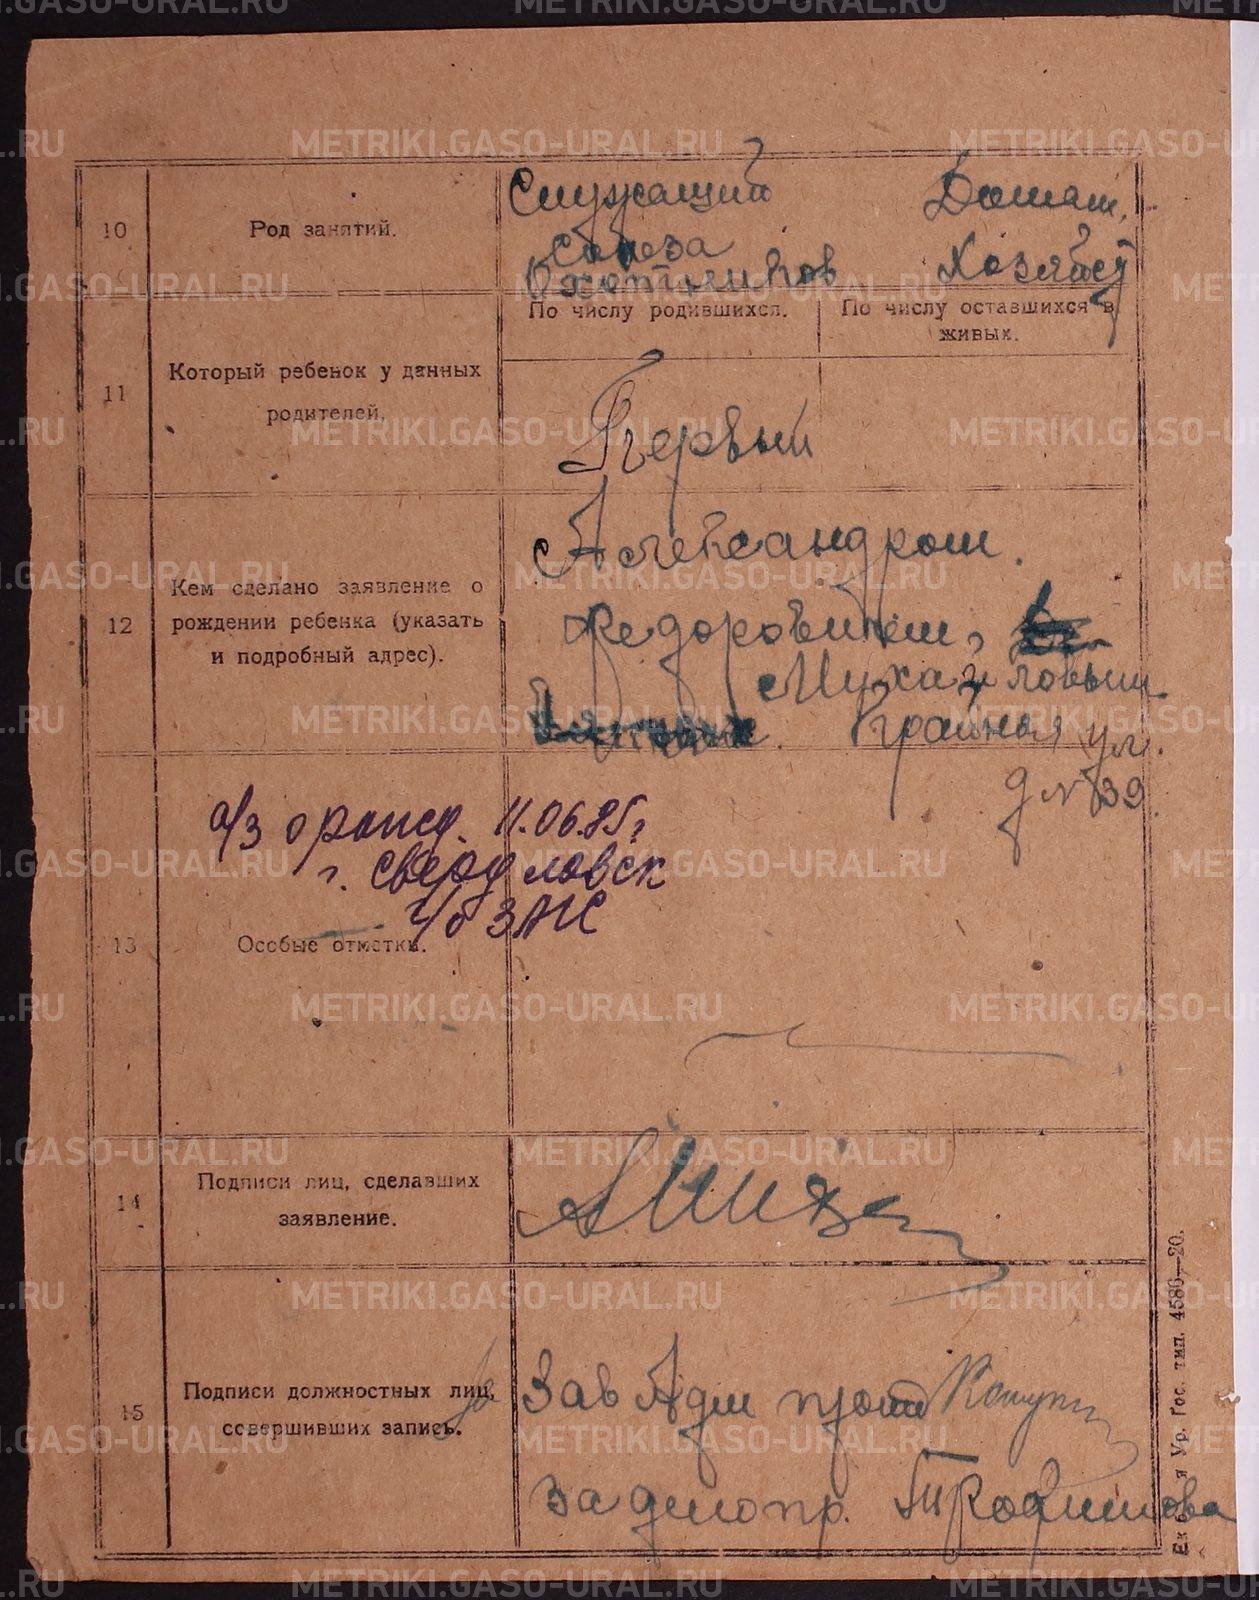 METRIKI.GASO-URAL.RU
10
Род занятий.
Служащий
Союза
Охотников
Домаш.
Хозяйст
11
Который ребенок у данных
родителей.
По числу родившихся.
По числу оставшихся в
живых.
Первый
12
Кем сделано заявление о
рождении ребенка (указать
и подробный адрес).
Александром
Федоровичем,
Михайловым
ул.
д № 39
13
Особые отметки.
а/з о рожд. 11.06.85г
г. Свердловск
г/б ЗАГС
14
Подписи лиц, сделавших
заявление.
15
Подписи должностных лиц,
совершивших запись.
За
Зав Адм
За делопр. Трофимова
Ур. Гос. тип. 4586—20.